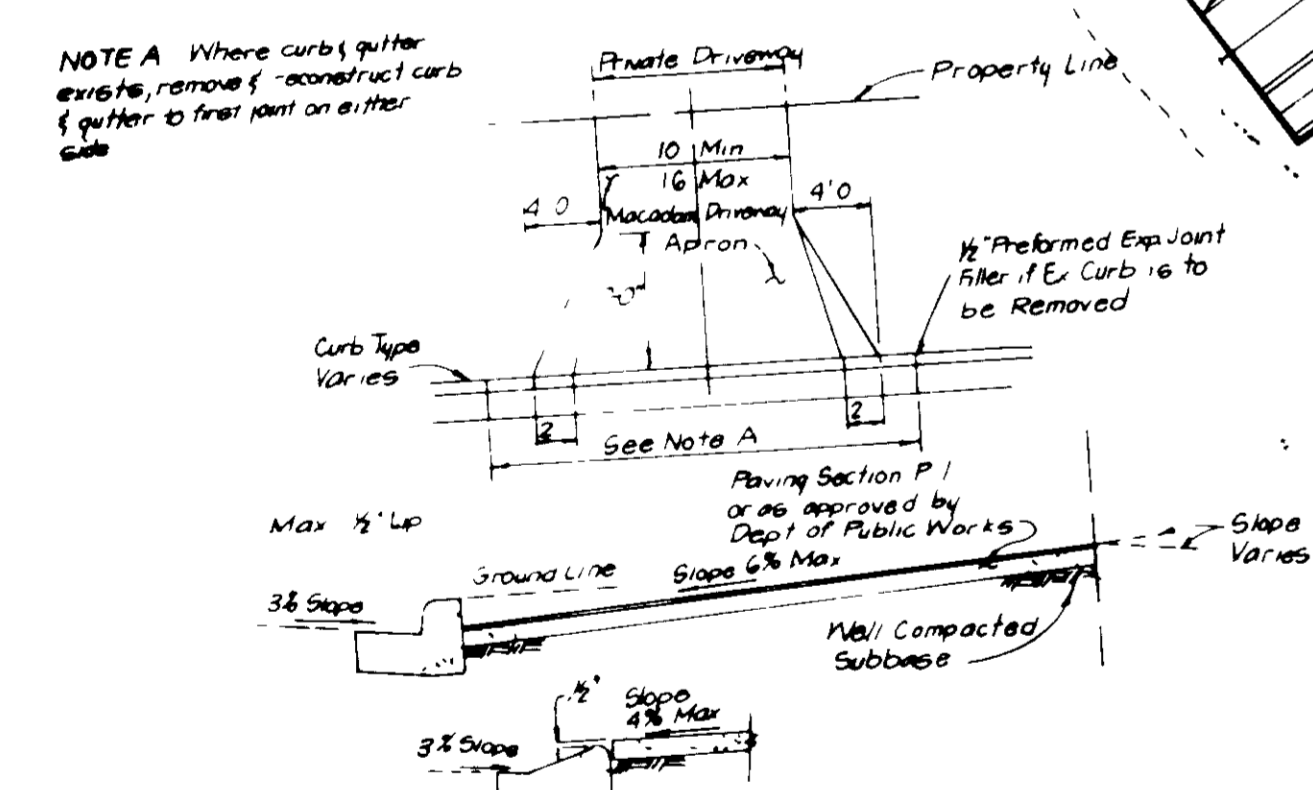 NOTE A Where curb & gutter
exists, remove & -econstruct curb
& gutter to first joint on either
side
Private Driveway
Property Line
10 Min
16 Max
4 0
4'0
Macadam Driveway
Apron
½" Preformed Exp Joint
Filler if Ex Curb is to
be Removed
Curb Type
Varies
2
2
See Note A
Paving Section P 1
or as approved by
Dept of Public Works
Max ½" Lip
Slope
Varies
Ground Line
Slope 6% Max
3% Slope
Well Compacted
Subbase
½"
Slope
4% Max
3% Slope